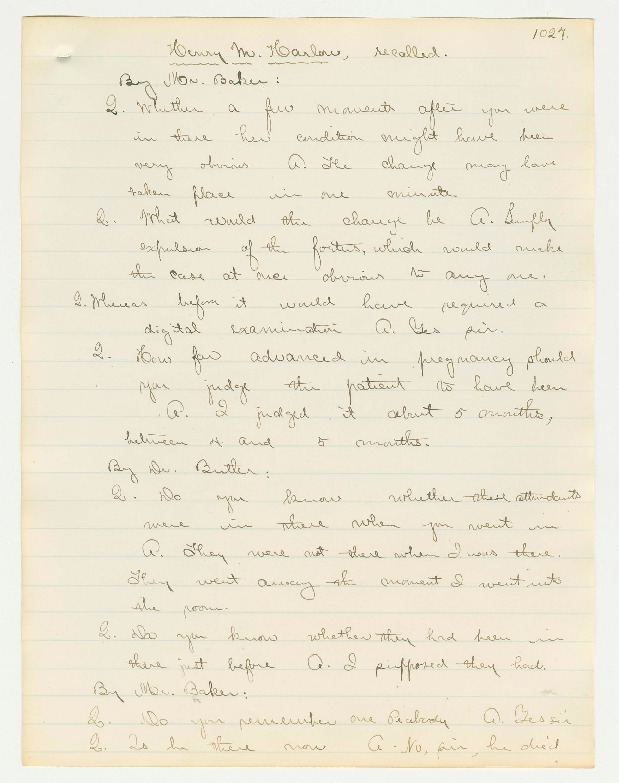 1027.
Henry M. Harlow, recalled.
By Mr. Baker:
Q. Whether a few moments after you were
in there her condition might have been
very obvious A. The change may have
taken place in one minute.
Q. What would the change be A. Simply
expulsion of the foetus, which would make
the case at once obvious to any one.
Q. Whereas before it would have required a
digital examination A. Yes sir.
Q. How far advanced in pregnancy should
you judge the patient to have been
A. I judged it about 5 months,
between 4 and 5 months.
By Dr. Butler:
Q. Do you know whether these attendants
were in there when you went in
A. They were not there when I was there.
They went away the moment I went into
the room.
Q. Do you know whether they had been in
there just before A. I supposed they had.
By Mr. Baker:
Q. Do you remember one Peabody A. Yes sir
Q. Is he there now A. No, sir, he died